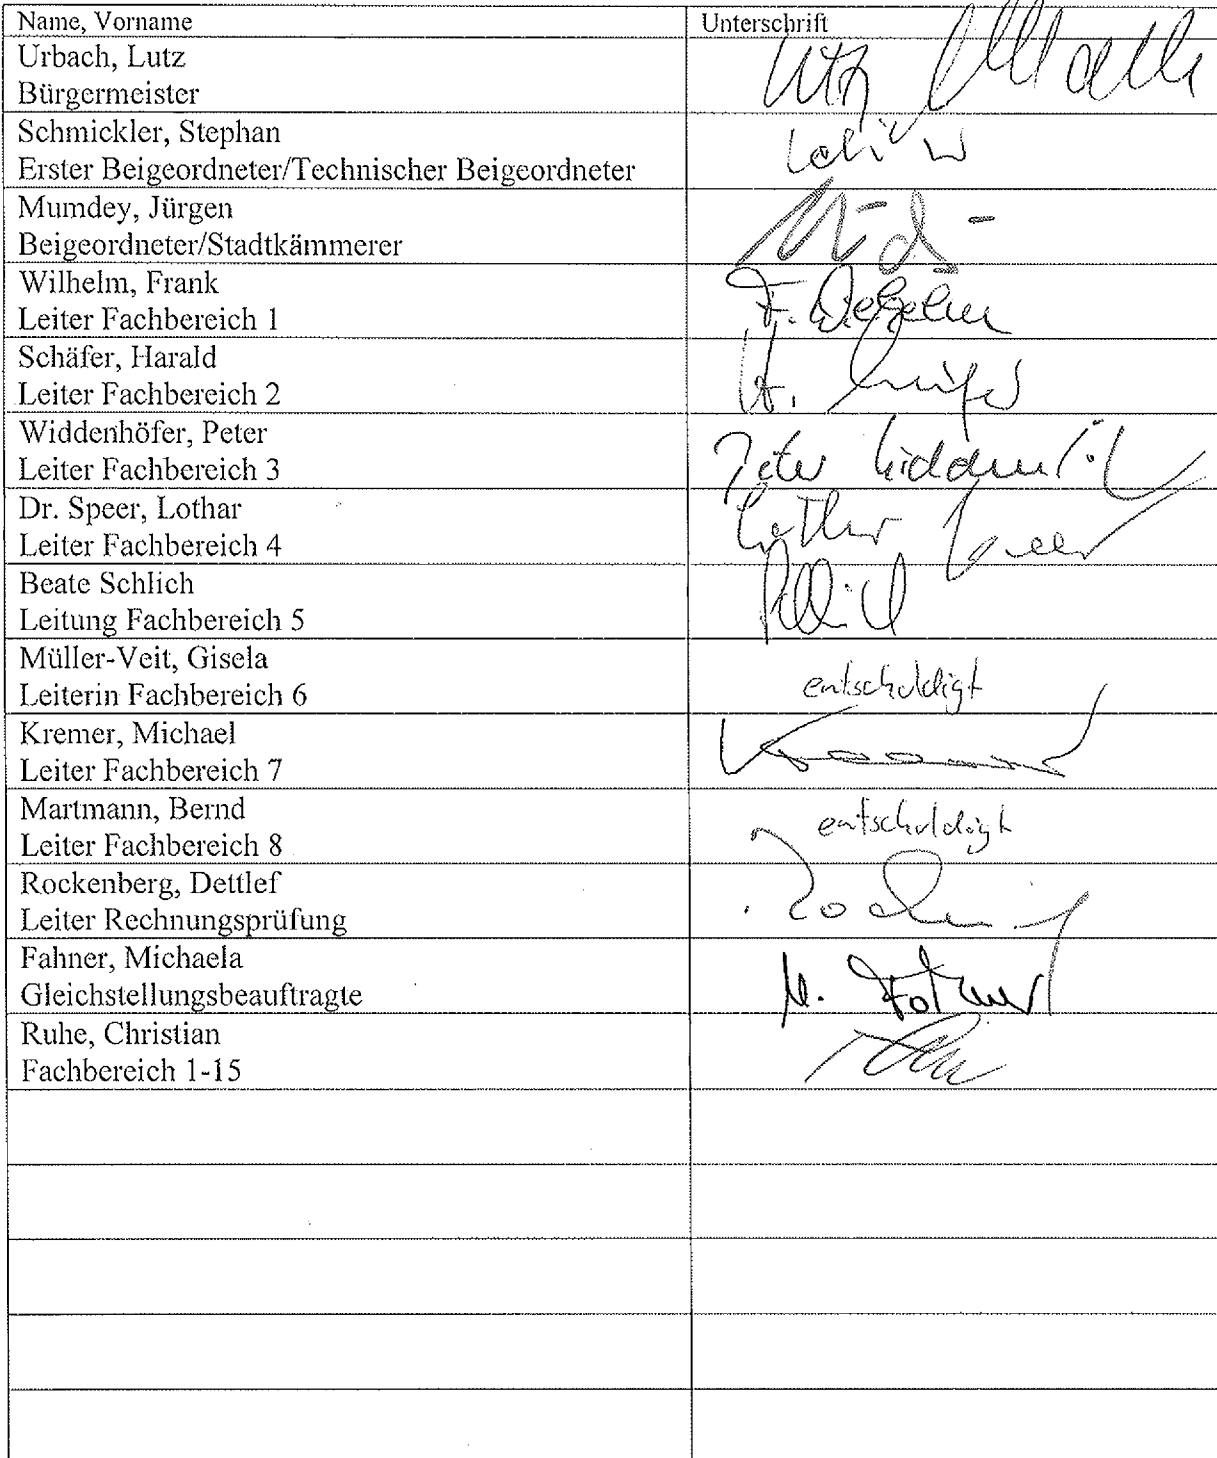 Name, Vorname Unterschrift
Urbach, Lutz
Bürgermeister
Lutz
Schmickler, Stephan
Erster Beigeordneter/Technischer Beigeordneter
Mumdey, Jürgen
Beigeordneter/Stadtkämmerer
Wilhelm, Frank
Leiter Fachbereich 1
F. Wilhelm
Schäfer, Harald
Leiter Fachbereich 2
H.
Widdenhöfer, Peter
Leiter Fachbereich 3
Peter
Dr. Speer, Lothar
Leiter Fachbereich 4
Lothar Speer
Beate Schlich
Leitung Fachbereich 5
Müller-Veit, Gisela
Leiterin Fachbereich 6
entschuldigt
Kremer, Michael
Leiter Fachbereich 7
Martmann, Bernd
Leiter Fachbereich 8
entschuldigt
Rockenberg, Dettlef
Leiter Rechnungsprüfung
Fahner, Michaela
Gleichstellungsbeauftragte
M. Fahner
Ruhe, Christian
Fachbereich 1-15